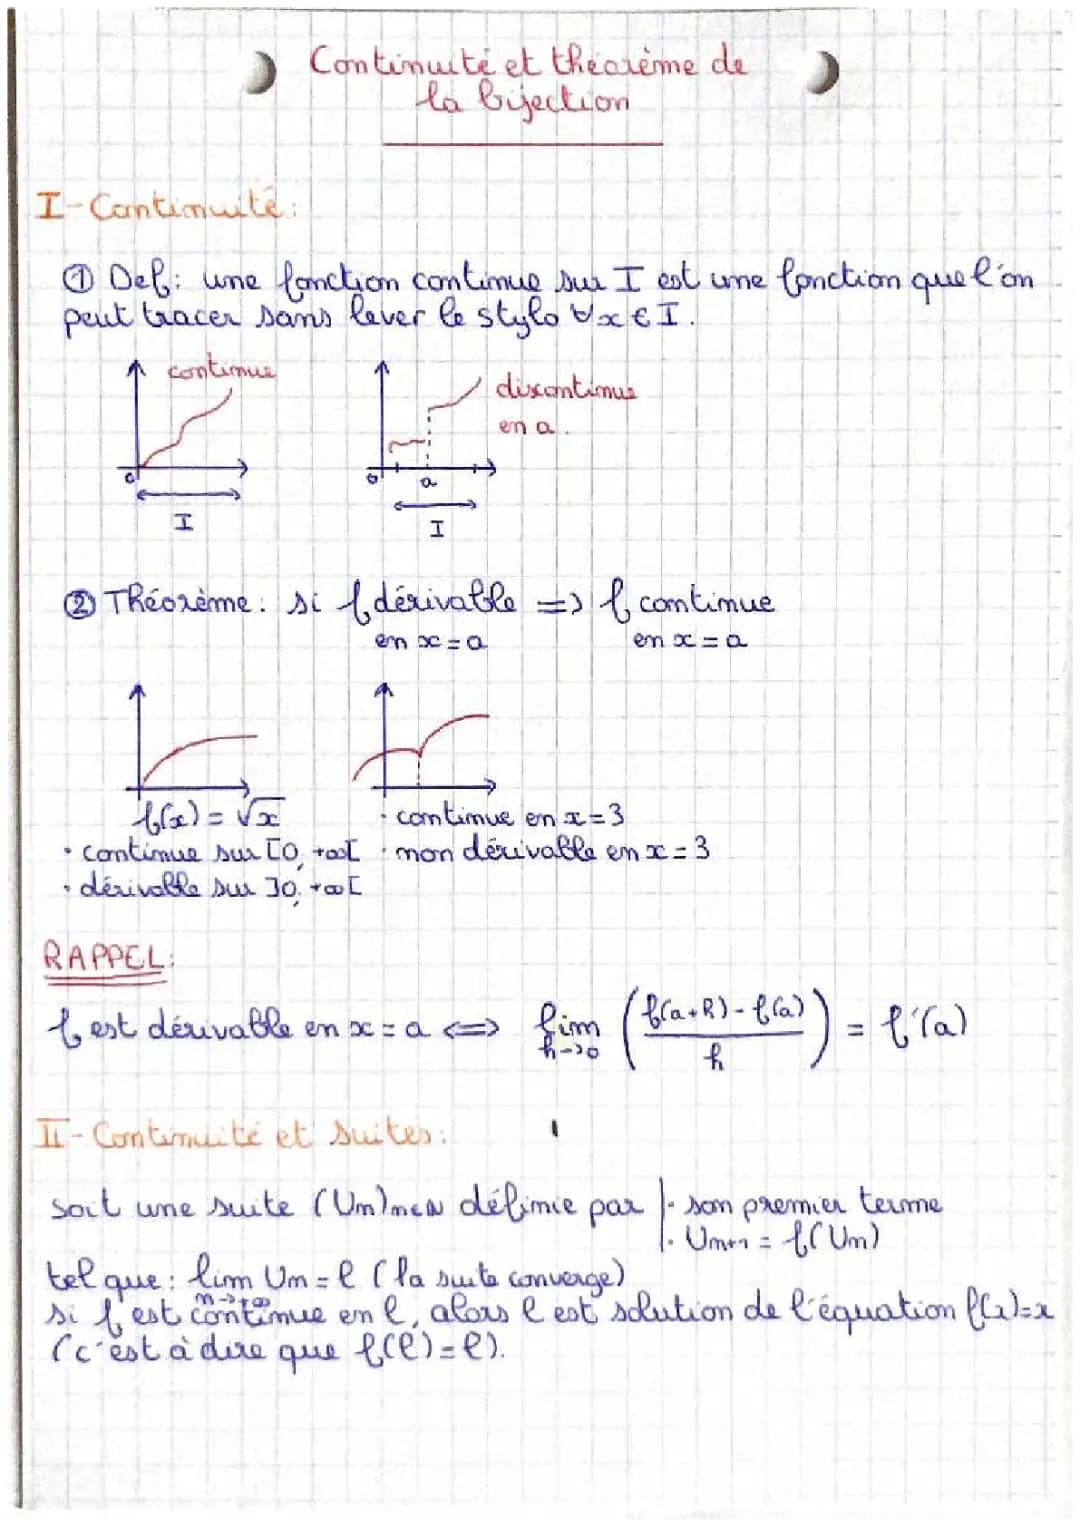 Continuité et théorème de
la bijection
I - Continuité:
① Def: une fonction continue sur I est une fonction que l'on
peut tracer sans lever le stylo ∀x ∈ I.
continue
discontinue
en a.
o
I
o
a
I
② Théorème: si f dérivable => f continue
en x = a
en x = a
f(x) = √x
· continue sur [0, +∞[
· dérivable sur ]0, +∞[
· continue en x = 3
· non dérivable en x = 3
RAPPEL:
f est dérivable en x = a <=> lim h->0 ( (f(a+h) - f(a)) / h ) = f'(a)
II - Continuité et suites:
soit une suite (Un)n∈N définie par | · son premier terme
| · Un+1 = f(Un)
tel que: lim n->+∞ Un = l (la suite converge)
si f est continue en l, alors l est solution de l'équation f(x)=x
(c'est à dire que f(l)=l).